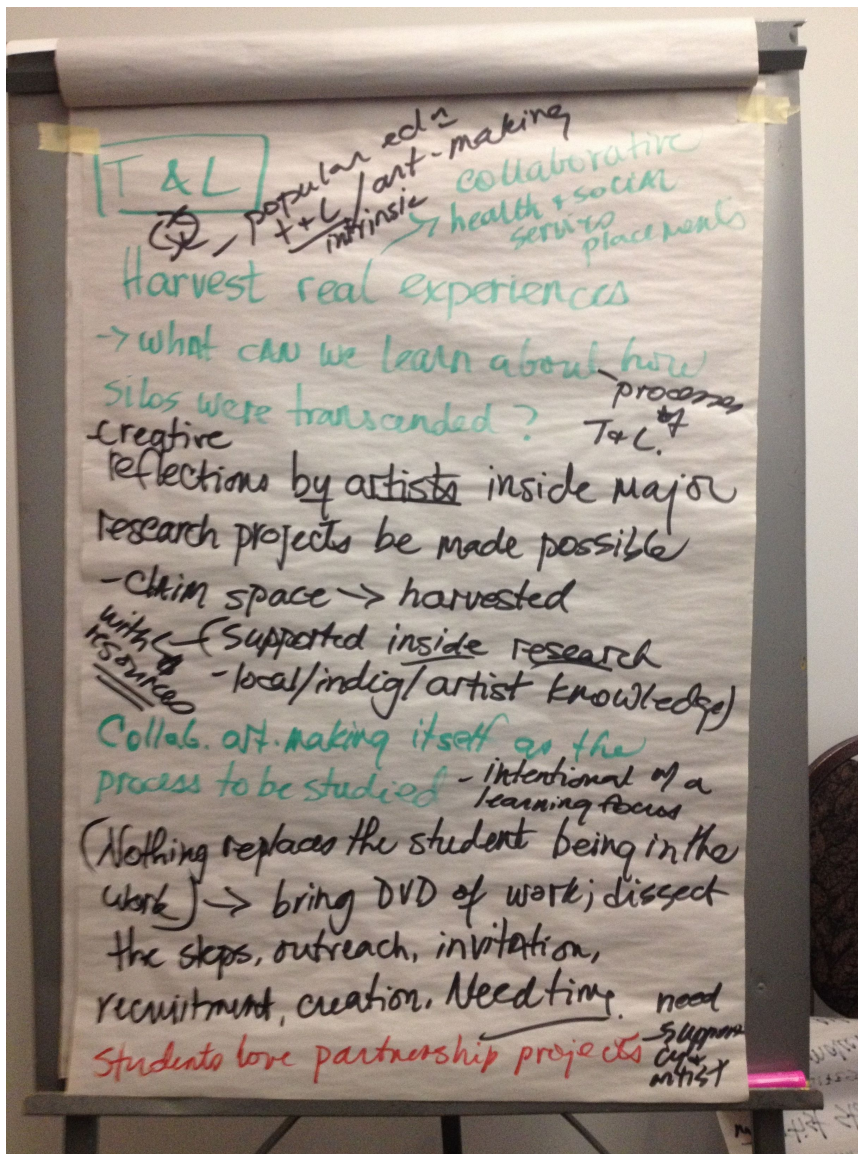 T & L
popular ed
T+L / art-making
intrinsic
collaborative
→ health & social
service
placements
Harvest real experiences
→ what can we learn about how
silos were transcended?
- processes
of
T&L.
- creative
reflections by artists inside major
research projects be made possible
- claim space → harvested
with
resources
(supported inside research
- local/indig/artist knowledge)
Collab. art-making itself as the
process to be studied
- intentional
a
learning focus
(Nothing replaces the student being in the
work) → bring DVD of work; dissect
the steps, outreach, invitation,
recruitment, creation. Need time.
Students love partnership projects
need
support
artist